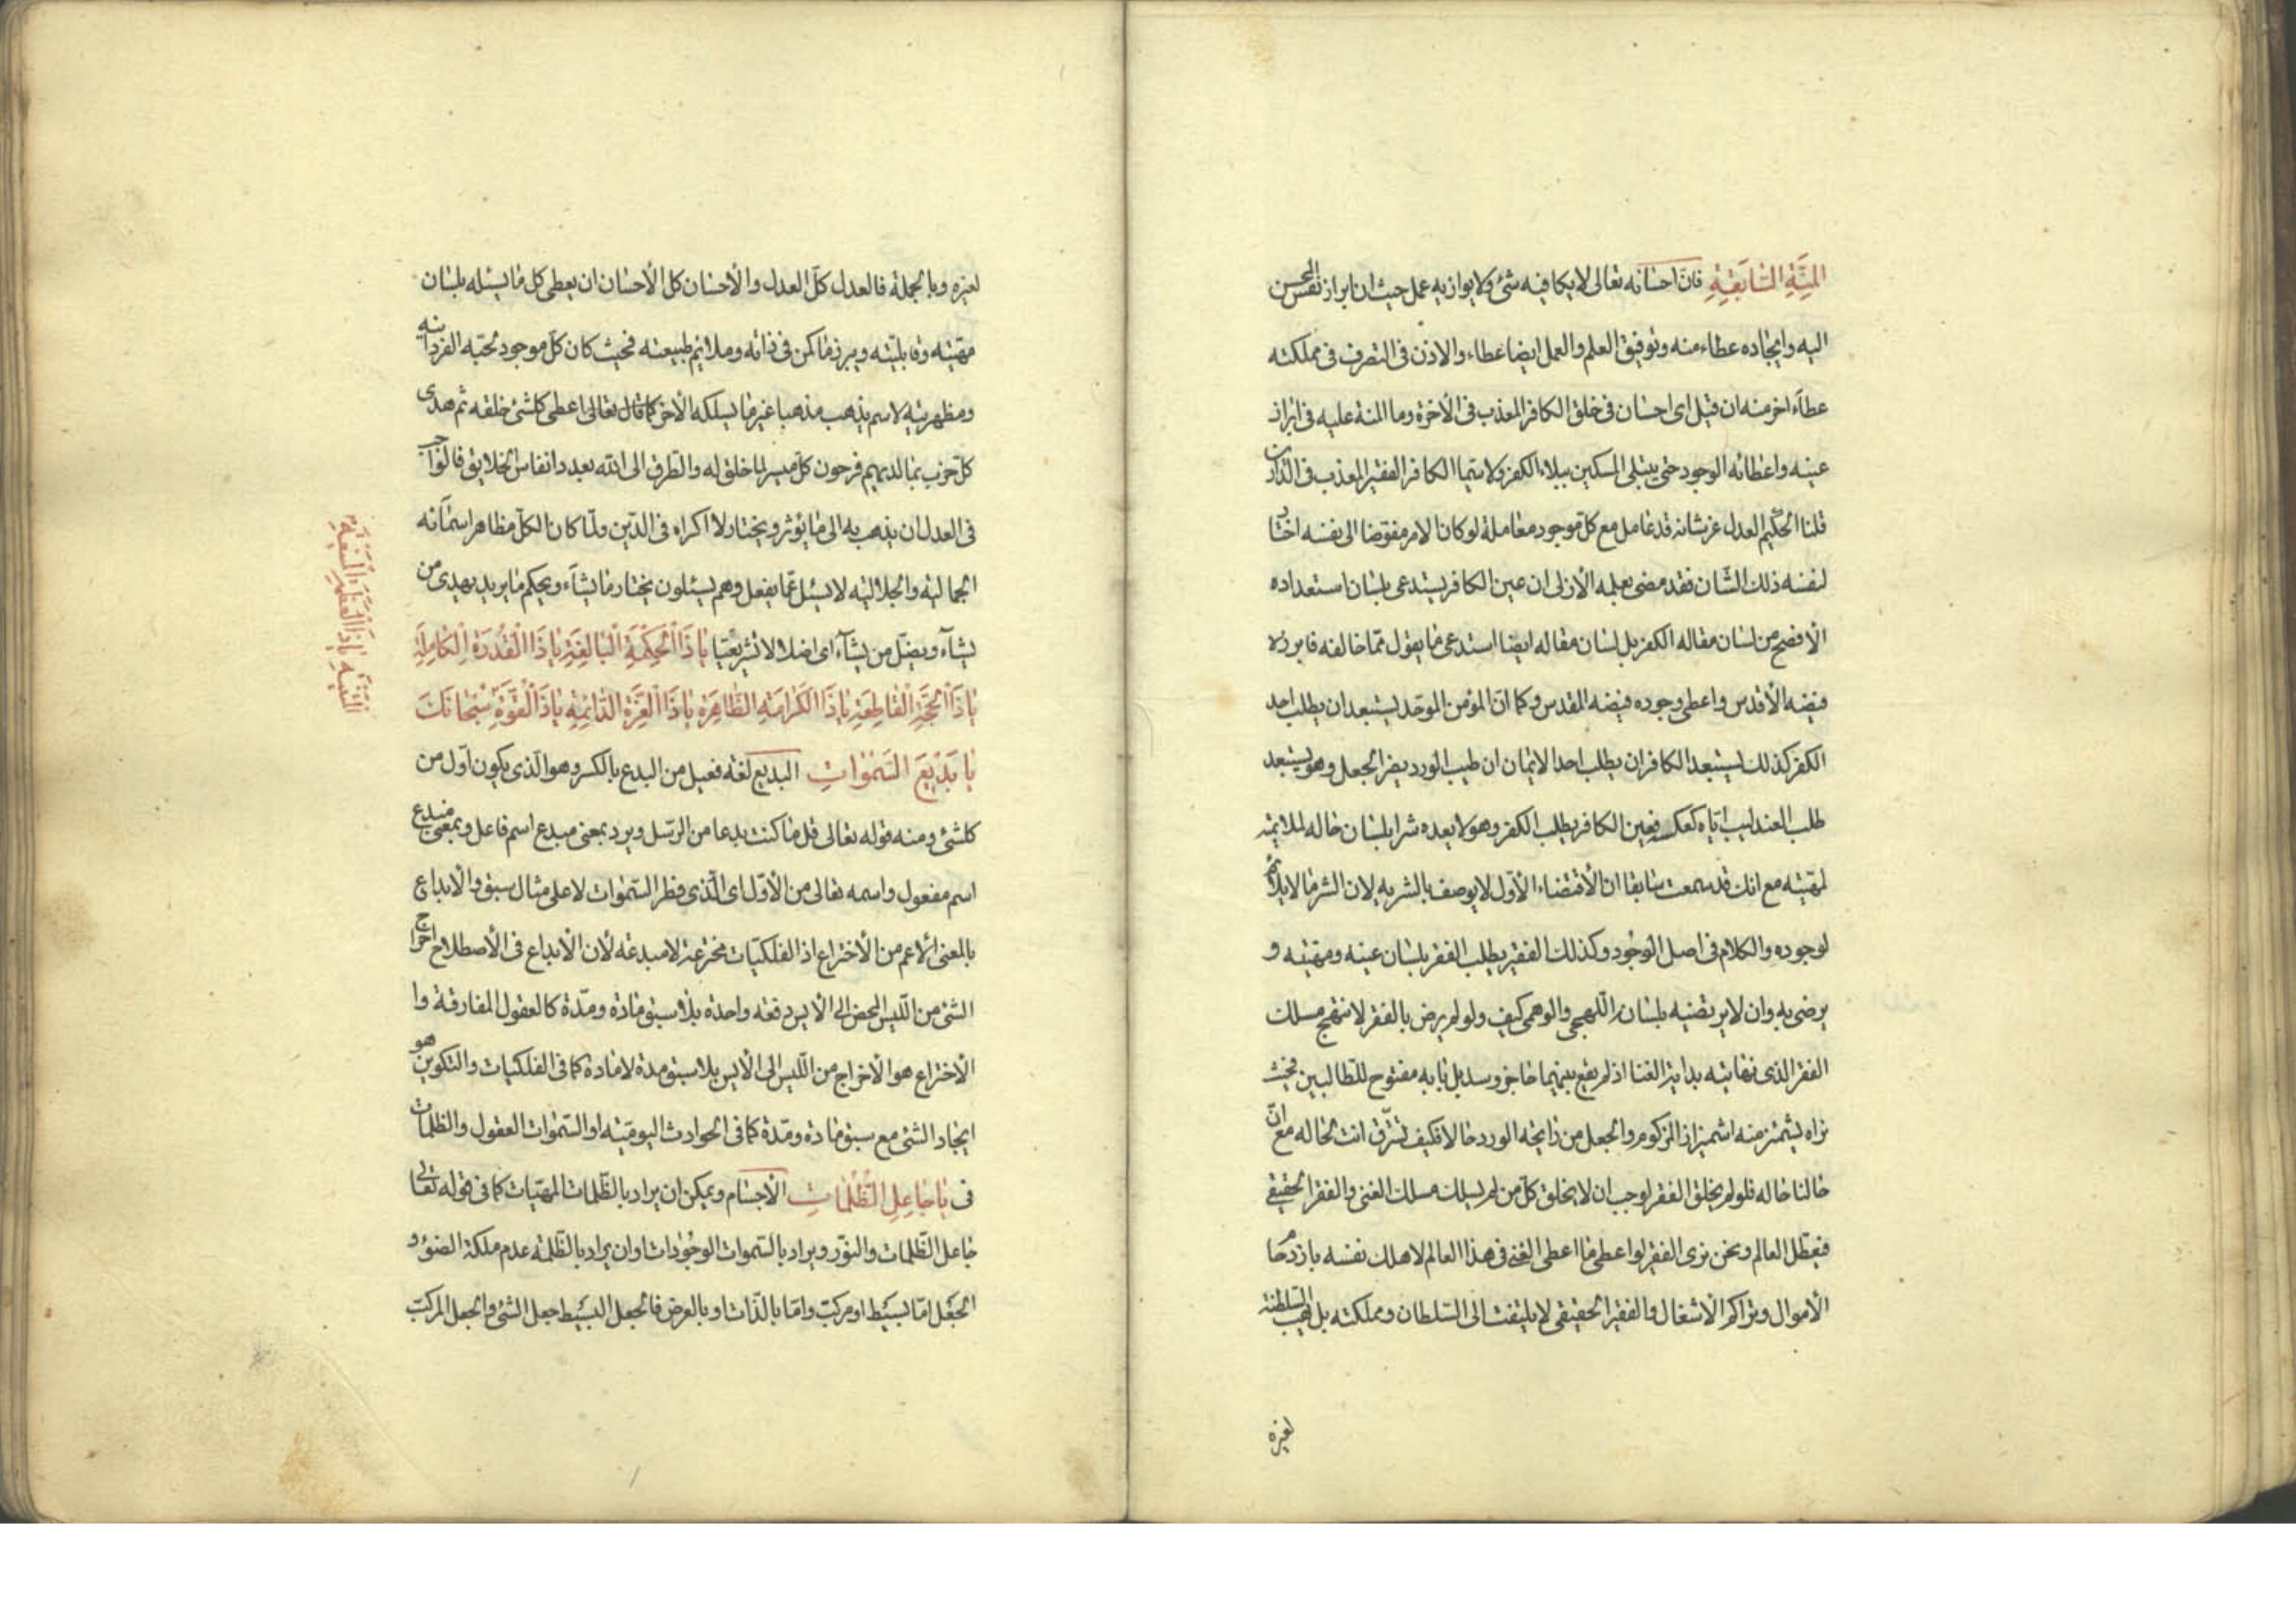 المنة السابقة فان احسانه تعالى لا يكافيه شئ ولا يوازيه عمل حيث ان ابراز نفس المحسن
اليه وايجاده عطاء منه وتوفيق العلم والعمل ايضا عطاء والاذن فى التصرف فى مملكته
عطآء اخر منه ان قيل اى احسان فى خلق الكافر المعذب فى الآخرة وما المنة عليه فى ابراز
عينه واعطائه الوجود حتى يبتلى المسكين ببلاء الكفر ولا سيما الكافر الفقير المعذب فى الدارين
قلنا الحكيم العدل عز شانه قد عامل مع كل موجود معاملة لو كان الامر مفوضا الى نفسه اختار
لنفسه ذلك الشان فقد مضى بعلمه الأزلى ان عين الكافر يستدعى بلسان استعداده
الأفصح من لسان مقاله الكفر بل لسان مقاله ايضا استدعى ما يقول مما خالفه فابرز
فيضه الأقدس واعطى وجوده فيضه المقدس وكما ان المؤمن الموحد يستبعد ان يطلب احد
الكفر كذلك يستبعد الكافر ان يطلب احد الايمان ان طيب الورد يضر الجعل وهو يستبعد
طلب العندليب اياه كعكسه فعين الكافر يطلب الكفر وهو لا يعده شرا بلسان حاله لملايمته
لمهيته مع انك قد سمعت سابقا ان الأقتضاء الأول لا يوصف بالشريه لان الشر ما لا يلائم
لوجوده والكلام فى اصل الوجود وكذلك الفقير يطلب الفقر بلسان عينه ومهيته و
يرضى به وان لا يرتضيه بلسان اللهجى والوهمى كيف ولو لم يرض بالفقر لانتهج مسلك
الفقر الذى نهايته بداية الغنا اذ لم يقع بينهما حاجز وسد بل بابه مفتوح للطالبين فحيث
نراه يشمئز منه اشمئزاز المزكوم والجعل من رايحة الورد حالا فكيف تشرق انت لحاله مع ان
حالنا حاله فلو لم يخلق الفقر لوجب ان لا يخلق كل من لم يسلك مسلك الغنى والفقر الحقيقى
فيعطل العالم ونحن نرى الفقير لو اعطى ما اعطى الغنى فى هذا العالم لاهلك نفسه بازدحام
الأموال وتراكم الأشغال والفقير الحقيقى لا يلتفت الى السلطان ومملكته بل يهب السلطنة
لغيره
لغيره وبالجملة فالعدل كل العدل والأحسان كل الأحسان ان يعطى كل ما يسئله بلسان
مهيته وقابليته ويبرز ما كمن فى ذاته وملائم طبيعته فحيث كان كل موجود تحبه الفردانيه
ومظهريته لاسم يذهب مذهبا غير ما يسلكه الأخر كما قال تعالى اعطى كلشئ خلقه ثم هدى
كل حزب بما لديهم فرحون كل ميسر لما خلق له والطرق الى الله بعدد انفاس الخلايق فالواجب
فى العدل ان يذهب به الى ما يؤثر ويختار ولا اكراه فى الدين ولما كان الكل مظاهر اسمآئه
الجماليه والجلاليه لا يسئل عما يفعل وهم يسئلون يختار ما يشآء ويحكم ما يريد يهدى من
يشآء ويضل من يشآء اى اضلالا لا تشريعيا يا ذا الحكمة البالغة يا ذا القدرة الكاملة
يا ذا الحجة القاطعة يا ذا الكرامة الظاهرة يا ذا العزة الدائمة يا ذا القوة سبحانك
المتينة يا ذا العظمة المنيعة
يا بديع السموات البديع لغة فعيل من البدع بالكسر وهو الذى يكون اول من
كلشئ ومنه قوله تعالى قل ما كنت بدعا من الرسل ويرد بمعنى مبدع اسم فاعل وبمعنى مبدع
اسم مفعول واسمه تعالى من الأول اى الذى فطر السموات لا على مثال سبق والأبداع
بالمعنى الأعم من الأختراع اذ الفلكيات مخترعة لا مبدعه لأن الأبداع فى الأصطلاح اخراج
الشئ من الليس المحض الى الأيس دفعه واحدة بلا سبق مادة ومدة كالعقول المفارقة وا
الأختراع هو الأخراج من الليس الى الأيس بلا سبق مدة لا مادة كما فى الفلكيات والتكوين هو
ايجاد الشئ مع سبق مادة ومدة كما فى الحوادث اليوميه او السموات العقول والظلمات
فى يا جاعل الظلمات الأجسام ويمكن ان يراد بالظلمات المهيات كما فى قوله تعالى
جاعل الظلمات والنور ويراد بالسموات الوجودات او ان يراد بالظلمه عدم ملكة الضوء و
الجعل اما بسيط او مركب واما بالذات او بالعرض فالجعل البسيط جعل الشئ والجعل المركب